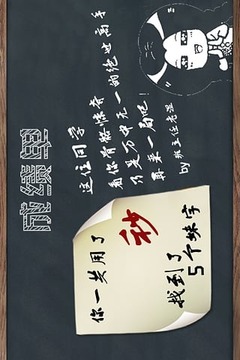 成绩单
这位同学
看你骨骼惊奇
乃是万中无一的绝世高手
再来一局吧!
by 班主任老湿
你一共用了
秒
找到了
5个妹字